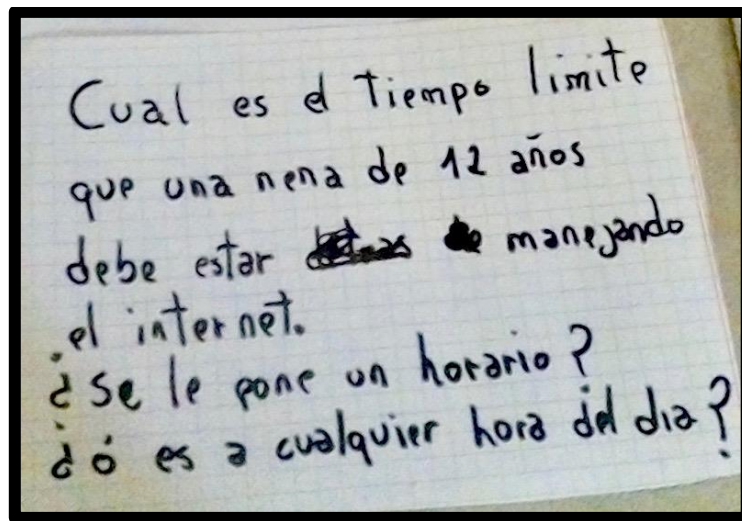 Cual es el Tiempo limite
que una nena de 12 años
debe estar manejando
el internet.
¿Se le pone un horario?
¿ó es a cualquier hora del dia?